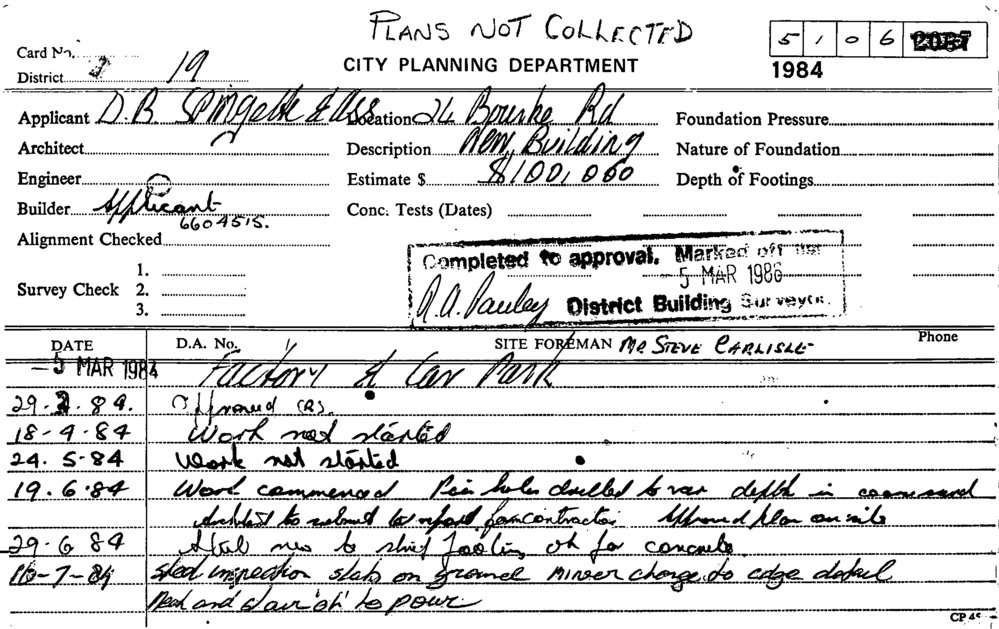 PLANS NOT COLLECTED
5 1 0 6 2087
Card No.
District 19
CITY PLANNING DEPARTMENT
1984
Applicant D. B. & Ass Location 24 Bourke Rd Foundation Pressure
Architect Description New Building Nature of Foundation
Engineer Estimate $ $1001,000 Depth of Footings
Builder Applicant Conc. Tests (Dates)
6604515.
Alignment Checked
1.
Survey Check 2.
3.
Completed to approval. Marked off
5 MAR 1986
District Building Surveyor.
DATE D.A. No. SITE FOREMAN MR STEVE CARLISLE Phone
5 MAR 1984 Factory & Car Park
29. . 84. Approved
18-4-84 Work not started
24. 5-84 Work not started
19.6.84 Work commenced holes drilled depth in
Architect to submit Approved plan on site
29-6 84 to strip footing ok for concrete.
-7-84 Steel inspection slab on ground minor change to edge detail
and stair 'ok' to pour
CP 45